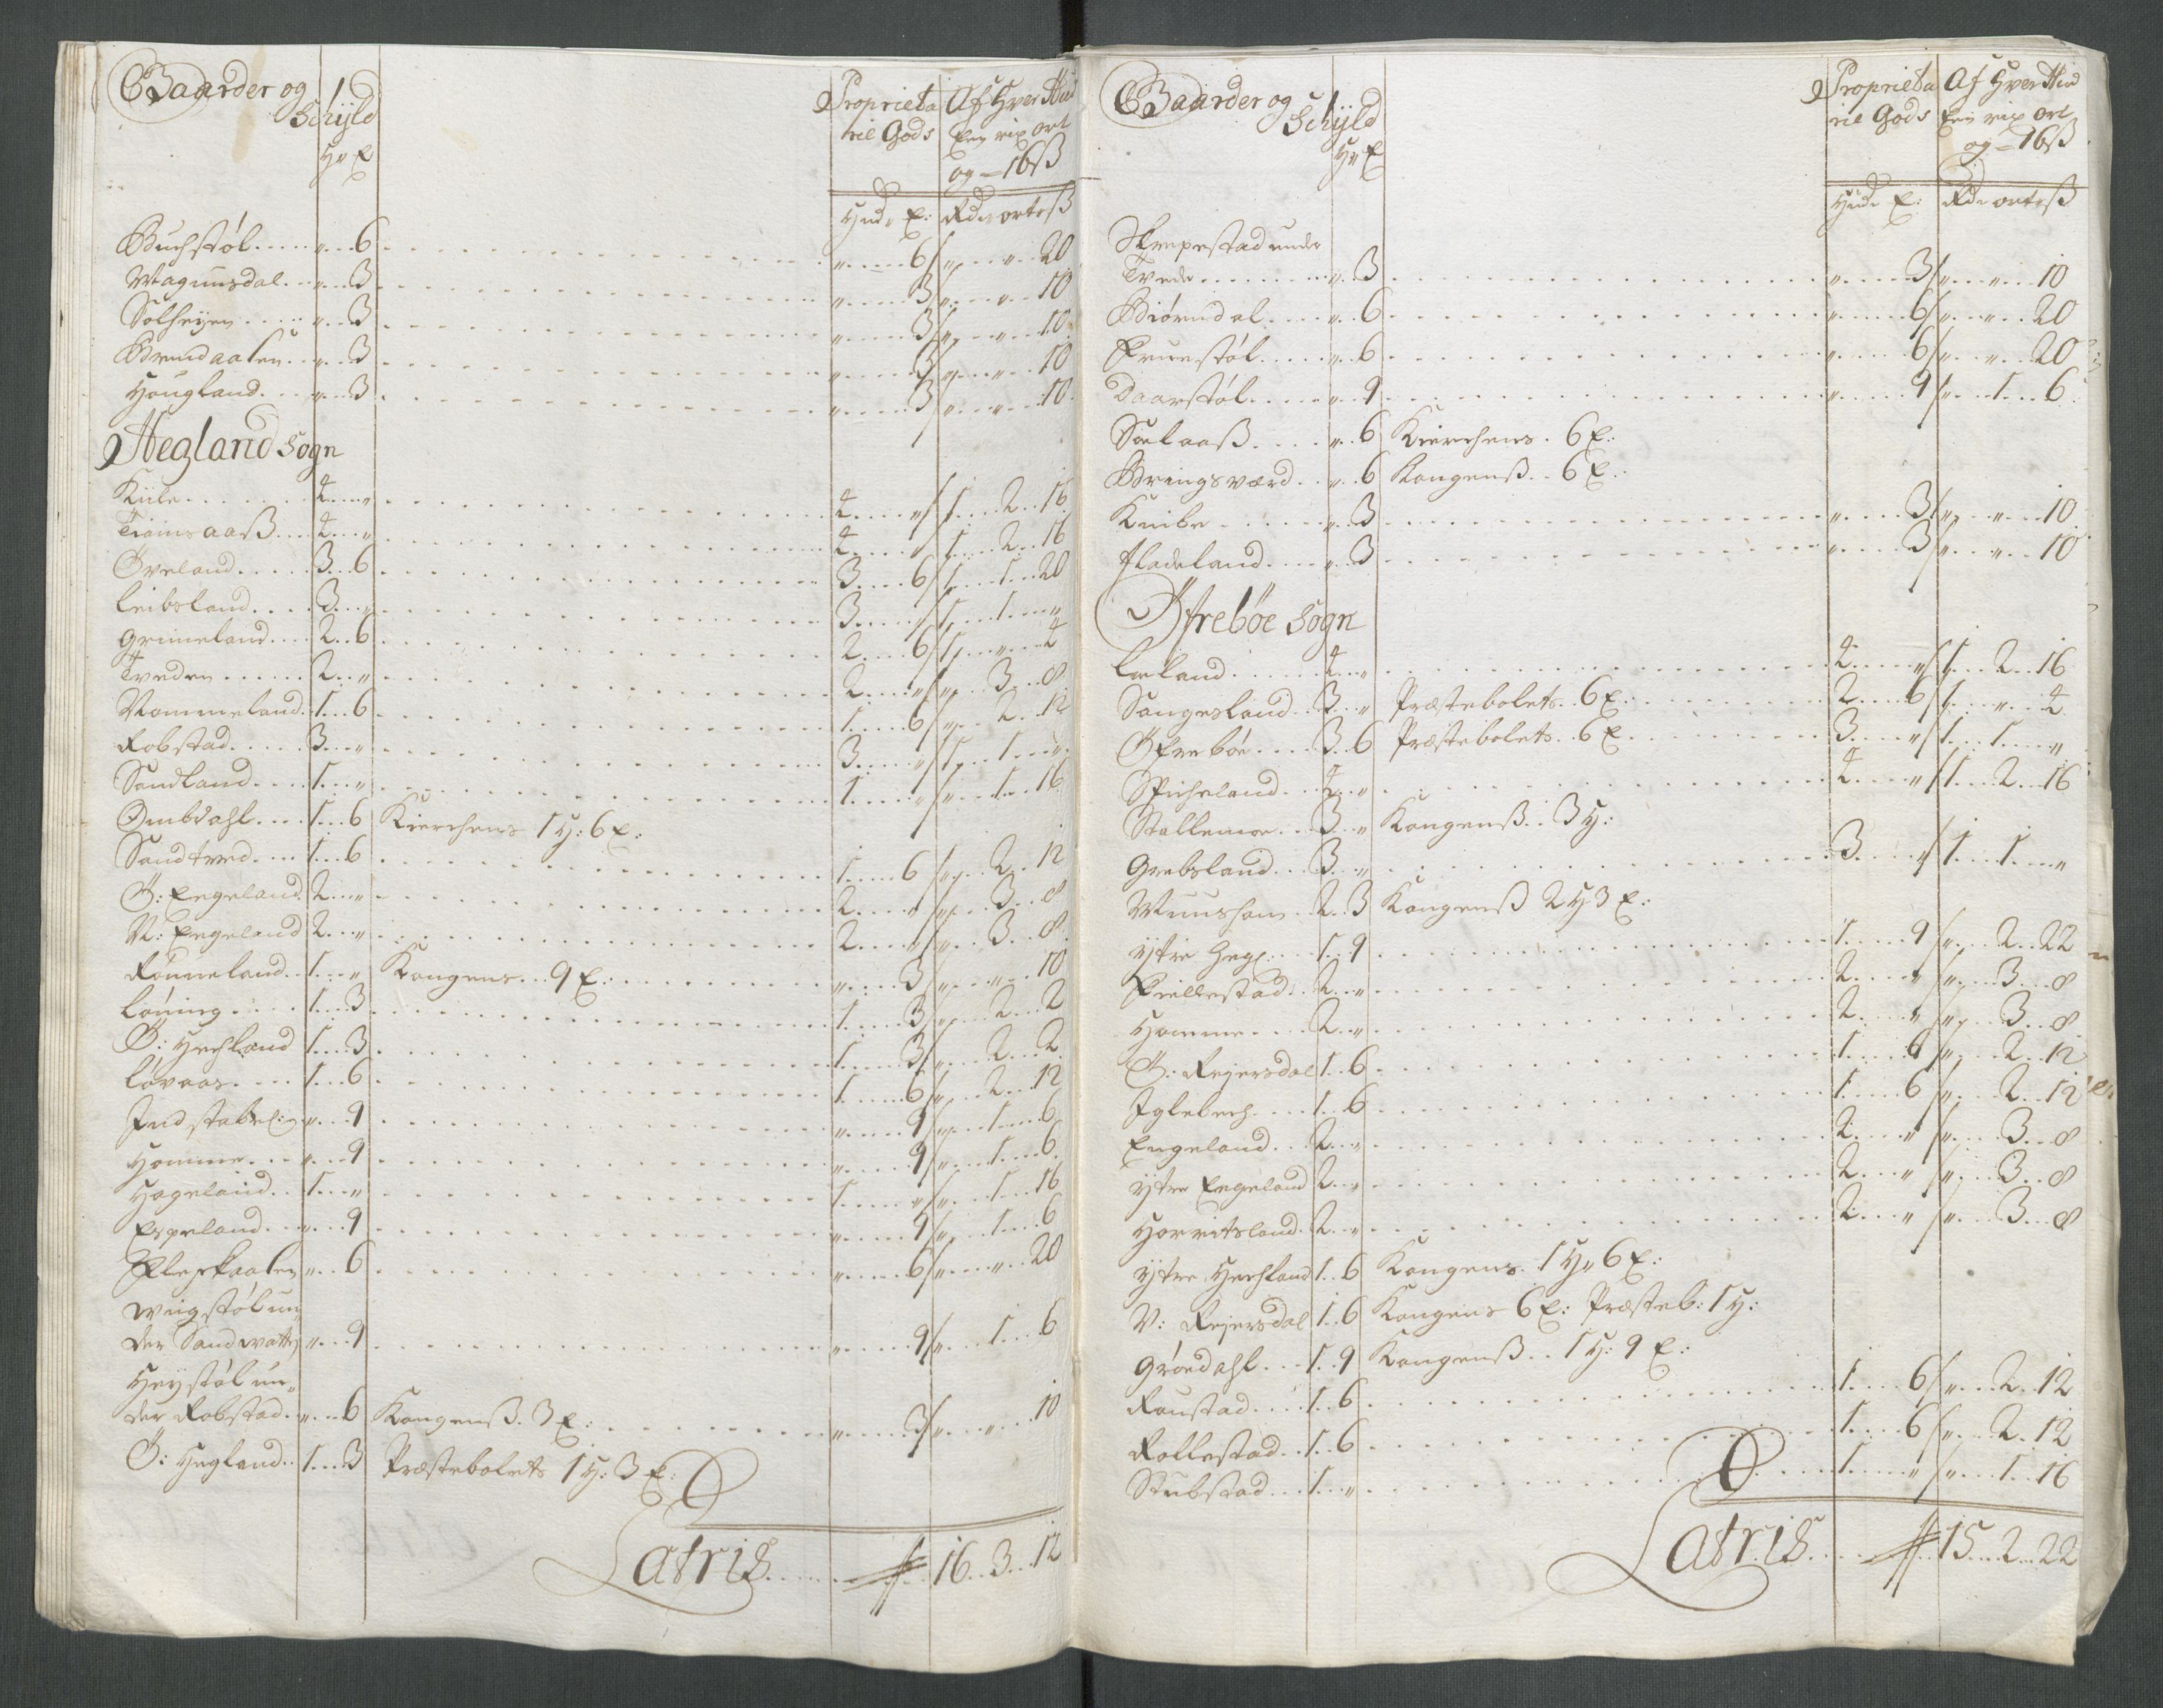 Gaarder og
Schÿld
H " E
Proprieta
riel Gods
Af Hver Hud
Een rix ort
og = 16ß
Hud " E: Rd " ort " ß
Buchstøl " 6 " 6 " " 20
Magunsdal " 3 " 3 " " 10
Solheÿen " 3 " 3 " " 10
Brendaasen " 3 " 3 " " 10
Hougland " 3 " 3 " " 10
Hegland Sogn
Kiile 4 " 4 " 1 2 16
Tiomsaaß 4 " 4 " 1 2 16
Øveland 3 6 3 6 1 1 20
Leibsland 3 " 3 " 1 1 "
Grimeland 2 6 2 6 1 " 4
Tveden 2 " 2 " " 3 8
Rommeland 1 6 1 6 " 2 12
Robstad 3 " 3 " 1 1 "
Sandland 1 " 1 " " 1 16
Ombdahl 1 6 Kierchens 1 H: 6 E:
Sandtved 1 6 1 6 " 2 12
Ø: Engeland 2 " 2 " " 3 8
N: Engeland 2 " 2 " " 3 8
Rønneland 1 " Kongens 9 E: " 3 " " 10
Løning 1 3 1 3 " 2 2
Ø: Hechland 1 3 1 3 " 2 2
Løvaas 1 6 1 6 " 2 12
Indstabel: " 9 " 9 " 1 6
Homme " 9 " 9 " 1 6
Hageland 1 " 1 " " 1 16
Espeland " 9 " 9 " 1 6
" 6 " 6 " " 20
Wiigstøl un
der Sandvatt " 9 " 9 " 1 6
Heÿstøl un
der Robstad " 6 Kongenß 3 E: " 3 " " 10
Ø: Hegland 1 3 Præstebolets 1 H: 3 E:
Latris 16 3 12
Gaarder og
Schÿld
H " E
Proprieta
riel Gods
Af Hver Hud
Een rix ort
og = 16ß
Hud " E: Rd " ort " ß
Skrepestad under
Tvede " 3 " 3 " " 10
Biørndal " 6 " 6 " " 20
Fruestøl " 6 " 6 " " 20
Daarstøl " 9 " 9 " 1 6
Sælaaß " 6 Kierchens 6 E:
Bringsværd " 6 Kongenß 6 E:
Knibe " 3 " 3 " " 10
Fladeland " 3 " 3 " " 10
Øfrebøe Sogn
Leland 4 " 4 " 1 2 16
Sangesland 3 " Præstebolets 6 E: 2 6 1 " 4
Øfrebøe 3 6 Præstebolets 6 E 3 " 1 1 "
Sticheland 4 " 4 " 1 2 16
Stallemoe 3 " Kongenß 3 H:
Grebsland 3 " 3 " 1 1 "
Muusham 2 3 Kongenß 2 H 3 E:
ÿtre Heg 1 9 1 9 " 2 22
Fiellestad 2 " 2 " " 3 8
Homme 2 " 2 " " 3 8
Ø: Reiersdal 1 6 1 6 " 2 12
Iglebech 1 6 1 6 " 2 12
Engeland 2 " 2 " " 3 8
ÿtre Engeland 2 " 2 " " 3 8
Horritsland 2 " 2 " " 3 8
ÿtre Hechland 1 6 Kongens 1 H " 6 E:
V: Reiersdal 1 6 Kongens 6 E: Præsteb: 1 H:
Grøndahl 1 9 Kongenß 1 H: 9 E:
Roustad 1 6 1 6 " 2 12
Rollestad 1 6 1 6 " 2 12
Stubstad 1 " 1 " " 1 16
Latris 15 2 22